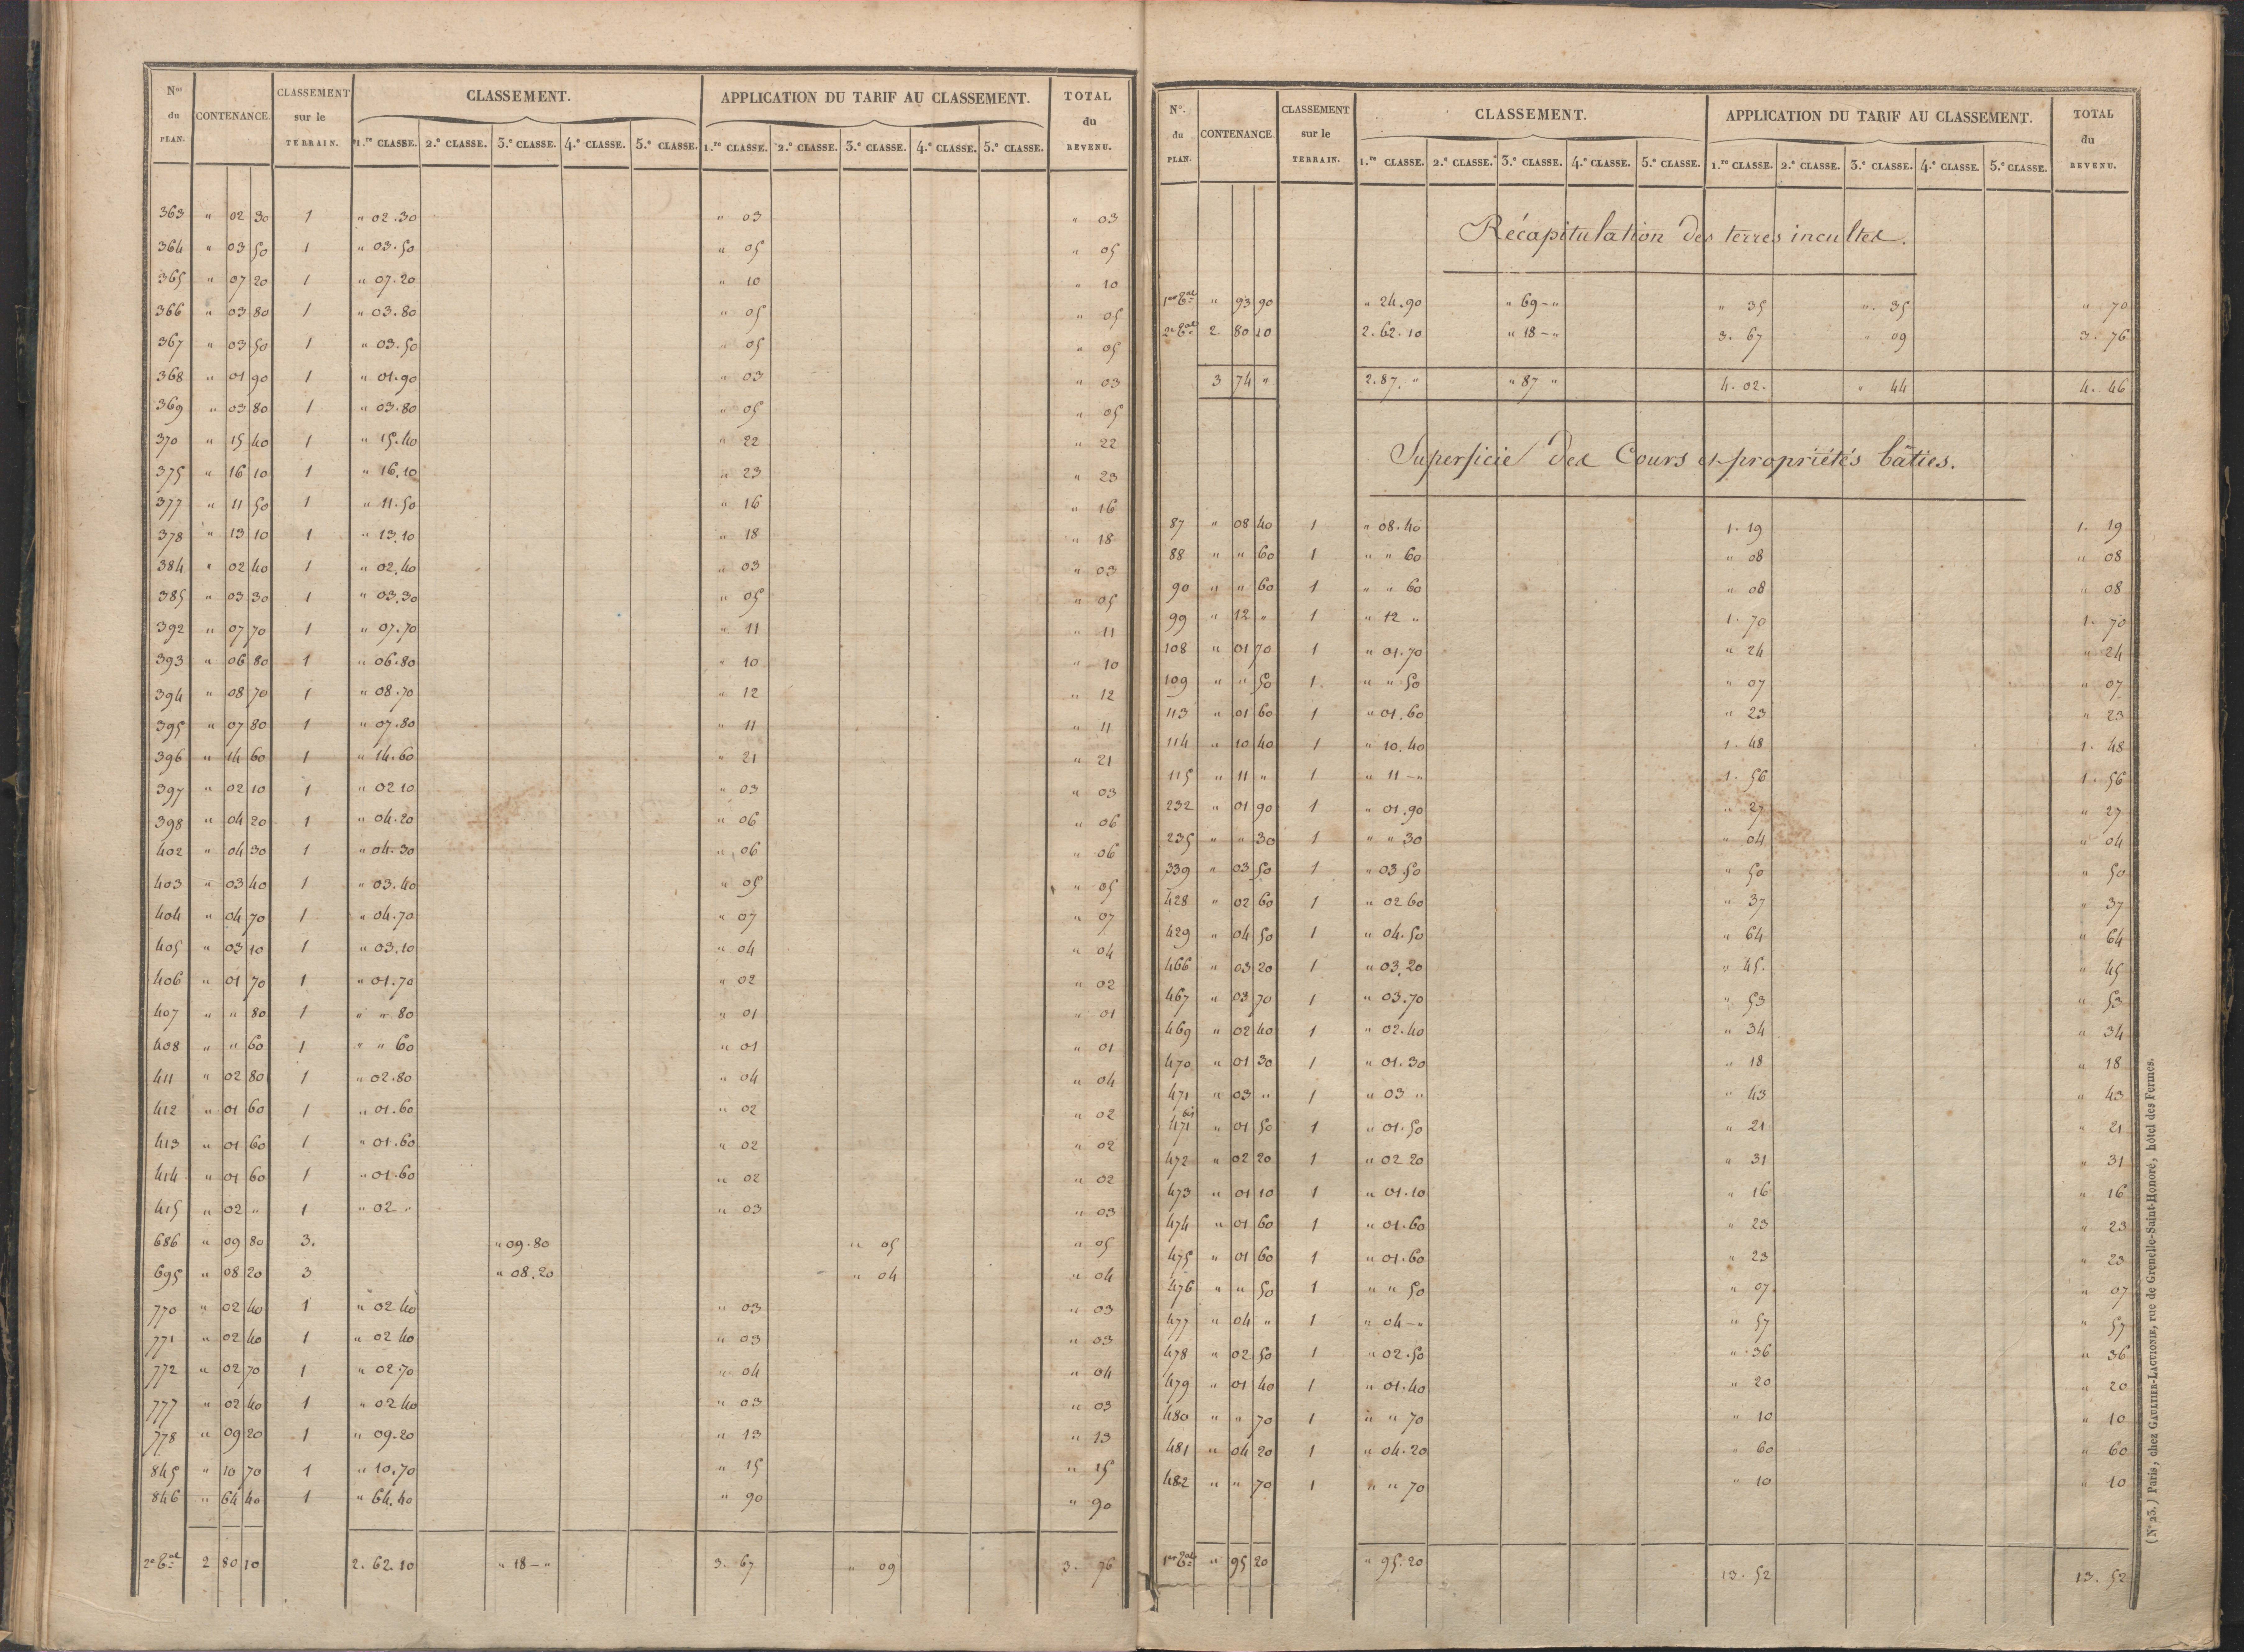 Nos du PLAN. CONTENANCE. CLASSEMENT sur le TERRAIN. CLASSEMENT. APPLICATION DU TARIF AU CLASSEMENT. TOTAL du REVENU.
1.re CLASSE. 2.e CLASSE. 3.e CLASSE. 4.e CLASSE. 5.e CLASSE. 1.re CLASSE. 2.e CLASSE. 3.e CLASSE. 4.e CLASSE. 5.e CLASSE.
363 " 02 30 1 " 02.30 " 03 " 03
364 " 03 50 1 " 03.50 " 05 " 05
365 " 07 20 1 " 07.20 " 10 " 10
366 " 03 80 1 " 03.80 " 05 " 05
367 " 03 50 1 " 03.50 " 05 " 05
368 " 01 90 1 " 01.90 " 03 " 03
369 " 03 80 1 " 03.80 " 05 " 05
370 " 15 40 1 " 15.40 " 22 " 22
375 " 16 10 1 " 16.10 " 23 " 23
377 " 11 50 1 " 11.50 " 16 " 16
378 " 13 10 1 " 13.10 " 18 " 18
384 " 02 40 1 " 02.40 " 03 " 03
385 " 03 30 1 " 03.30 " 05 " 05
392 " 07 70 1 " 07.70 " 11 " 11
393 " 06 80 1 " 06.80 " 10 " 10
394 " 08 70 1 " 08.70 " 12 " 12
395 " 07 80 1 " 07.80 " 11 " 11
396 " 14 60 1 " 14.60 " 21 " 21
397 " 02 10 1 " 02 10 " 03 " 03
398 " 04 20 1 " 04.20 " 06 " 06
402 " 04 30 1 " 04.30 " 06 " 06
403 " 03 40 1 " 03.40 " 05 " 05
404 " 04 70 1 " 04.70 " 07 " 07
405 " 03 10 1 " 03.10 " 04 " 04
406 " 01 70 1 " 01.70 " 02 " 02
407 " " 80 1 " " 80 " 01 " 01
408 " " 60 1 " " 60 " 01 " 01
411 " 02 80 1 " 02.80 " 04 " 04
412 " 01 60 1 " 01.60 " 02 " 02
413 " 01 60 1 " 01.60 " 02 " 02
414 " 01 60 1 " 01.60 " 02 " 02
415 " 02 " 1 " 02 " " 03 " 03
686 " 09 80 3. " 09.80 " 05 " 05
695 " 08 20 3 " 08.20 " 04 " 04
770 " 02 40 1 " 02 40 " 03 " 03
771 " 02 40 1 " 02 40 " 03 " 03
772 " 02 70 1 " 02.70 " 04 " 04
777 " 02 40 1 " 02 40 " 03 " 03
778 " 09 20 1 " 09.20 " 13 " 13
845 " 10 70 1 " 10.70 " 15 " 15
846 " 64 40 1 " 64.40 " 90 " 90
2e Tal 2 80 10 2. 62. 10 " 18 - " 3. 67 " 09 3. 76
No. du PLAN. CONTENANCE. CLASSEMENT sur le TERRAIN. CLASSEMENT. APPLICATION DU TARIF AU CLASSEMENT. TOTAL du REVENU.
1.re CLASSE. 2.e CLASSE. 3.e CLASSE. 4.e CLASSE. 5.e CLASSE. 1.re CLASSE. 2.e CLASSE. 3.e CLASSE. 4.e CLASSE. 5.e CLASSE.
Récapitulation des terres incultes.
1er Tal " 93 90 " 24.90 " 69 - " " 35 " 35 " 70
2e Tal 2 80 10 2. 62. 10 " 18 - " 3. 67 " 09 3. 76
3 74 " 2. 87. " " 87 " 4. 02. " 44 4. 46
Superficie des Cours et propriétés bâties.
87 " 08 40 1 " 08.40 1. 19 1. 19
88 " " 60 1 " " 60 " 08 " 08
90 " " 60 1 " " 60 " 08 " 08
99 " 12 " 1 " 12 " 1. 70 1. 70
108 " 01 70 1 " 01.70 " 24 " 24
109 " " 50 1. " " 50 " 07 " 07
113 " 01 60 1 " 01.60 " 23 " 23
114 " 10 40 1 " 10.40 1. 48 1. 48
115 " 11 " 1 " 11 - " 1. 56 1. 56
232 " 01 90 1 " 01.90 " 27 " 27
235 " " 30 1 " " 30 " 04 " 04
339 " 03 50 1 " 03.50 " 50 " 50
428 " 02 60 1 " 02 60 " 37 " 37
429 " 04 50 1 " 04.50 " 64 " 64
466 " 03 20 1 " 03.20 " 45. " 45
467 " 03 70 1 " 03.70 " 53 " 53
469 " 02 40 1 " 02.40 " 34 " 34
470 " 01 30 1 " 01.30 " 18 " 18
471 " 03 " 1 " 03 " " 43 " 43
471 bis " 01 50 1 " 01.50 " 21 " 21
472 " 02 20 1 " 02 20 " 31 " 31
473 " 01 10 1 " 01.10 " 16 " 16
474 " 01 60 1 " 01.60 " 23 " 23
475 " 01 60 1 " 01.60 " 23 " 23
476 " " 50 1 " " 50 " 07 " 07
477 " 04 " 1 " 04 - " " 57 " 57
478 " 02 50 1 " 02.50 " 36 " 36
479 " 01 40 1 " 01.40 " 20 " 20
480 " " 70 1 " " 70 " 10 " 10
481 " 04 20 1 " 04.20 " 60 " 60
482 " " 70 1 " " 70 " 10 " 10
1er Tal " 95 20 " 95.20 13. 52 13. 52
(No 23.) Paris, chez GAULTIER-LAGUIONIE, rue de Grenelle-Saint-Honoré, hôtel des Fermes.